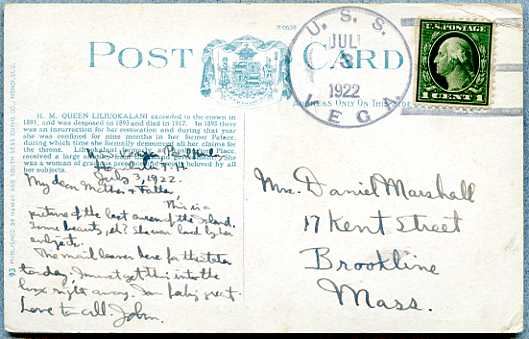 POST CARD
U. S. S.
JUL
3
1922
LEG
U.S. POSTAGE
1 CENT 1
ADDRESS ONLY ON THIS SIDE
H. M. QUEEN LILIUOKALANI ascended to the crown in
1891, and was deposed in 1893 and died in 1917. In 1895 there
was an insurrection for her restoration and during that year
she was confined for nine months in her former Palace,
during which time she formally renounced all her claims for
the throne. Liliuokalani
received a large
was a woman of great beloved by all
her subjects.
July 3, 1922.
My dear Mother & Father,
This is a
picture of the last queen of the island.
Some beauty, eh? She was loved by her
subjects.
The mail leaves here for the states
today. I must get this into the
box right away. Am feeling great.
Love to all. John.
Mrs. Daniel Marshall
17 Kent Street
Brookline
Mass.